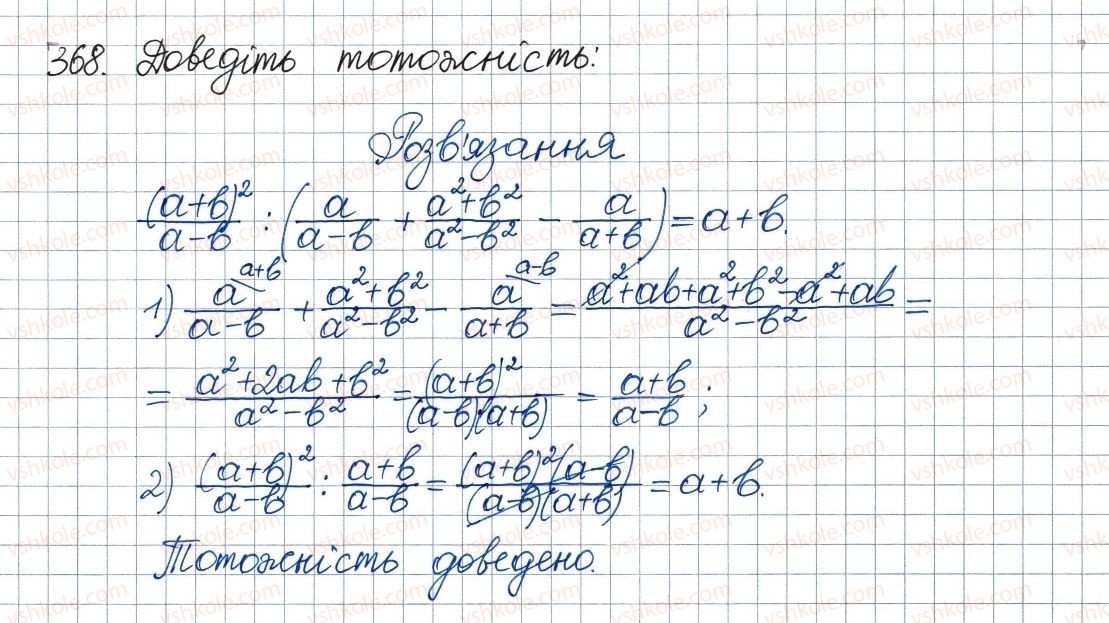 368. Доведіть тотожність:
Розв'язання
(a+b)²/(a-b) : (a/(a-b) + (a²+b²)/(a²-b²) - a/(a+b)) = a+b.
1) a^(a+b)/(a-b) + (a²+b²)/(a²-b²) - a^(a-b)/(a+b) = (a²+ab+a²+b²-a²+ab)/(a²-b²) =
= (a²+2ab+b²)/(a²-b²) = (a+b)²/((a-b)(a+b)) = (a+b)/(a-b);
2) (a+b)²/(a-b) : (a+b)/(a-b) = (a+b)²(a-b)/((a-b)(a+b)) = a+b.
Тотожність доведено.